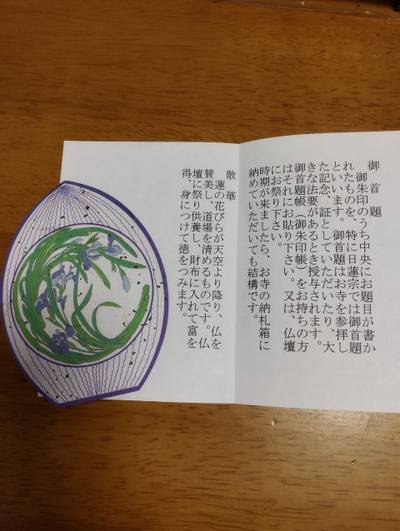 御首題
御朱印のうち中央にお題目が書か
れたものを、特に日蓮宗では御首題
といいます。御首題はお寺を参拝し
た記念、証としていただいたり、大
きな法要があるとき授与されます。
御首題帳（御朱印帳）をお持ちの方
はそれにお貼り下さい。又は、仏壇
にお祭り下さい。
時期が来ましたら、お寺の納札箱に
納めていただいても結構です。
散華
蓮の花びらが天空より降り、仏を
賛美し、道場を清めるものです。仏
壇に祭り供養し、財布に入れて富を
得、身につけて徳をつみます。